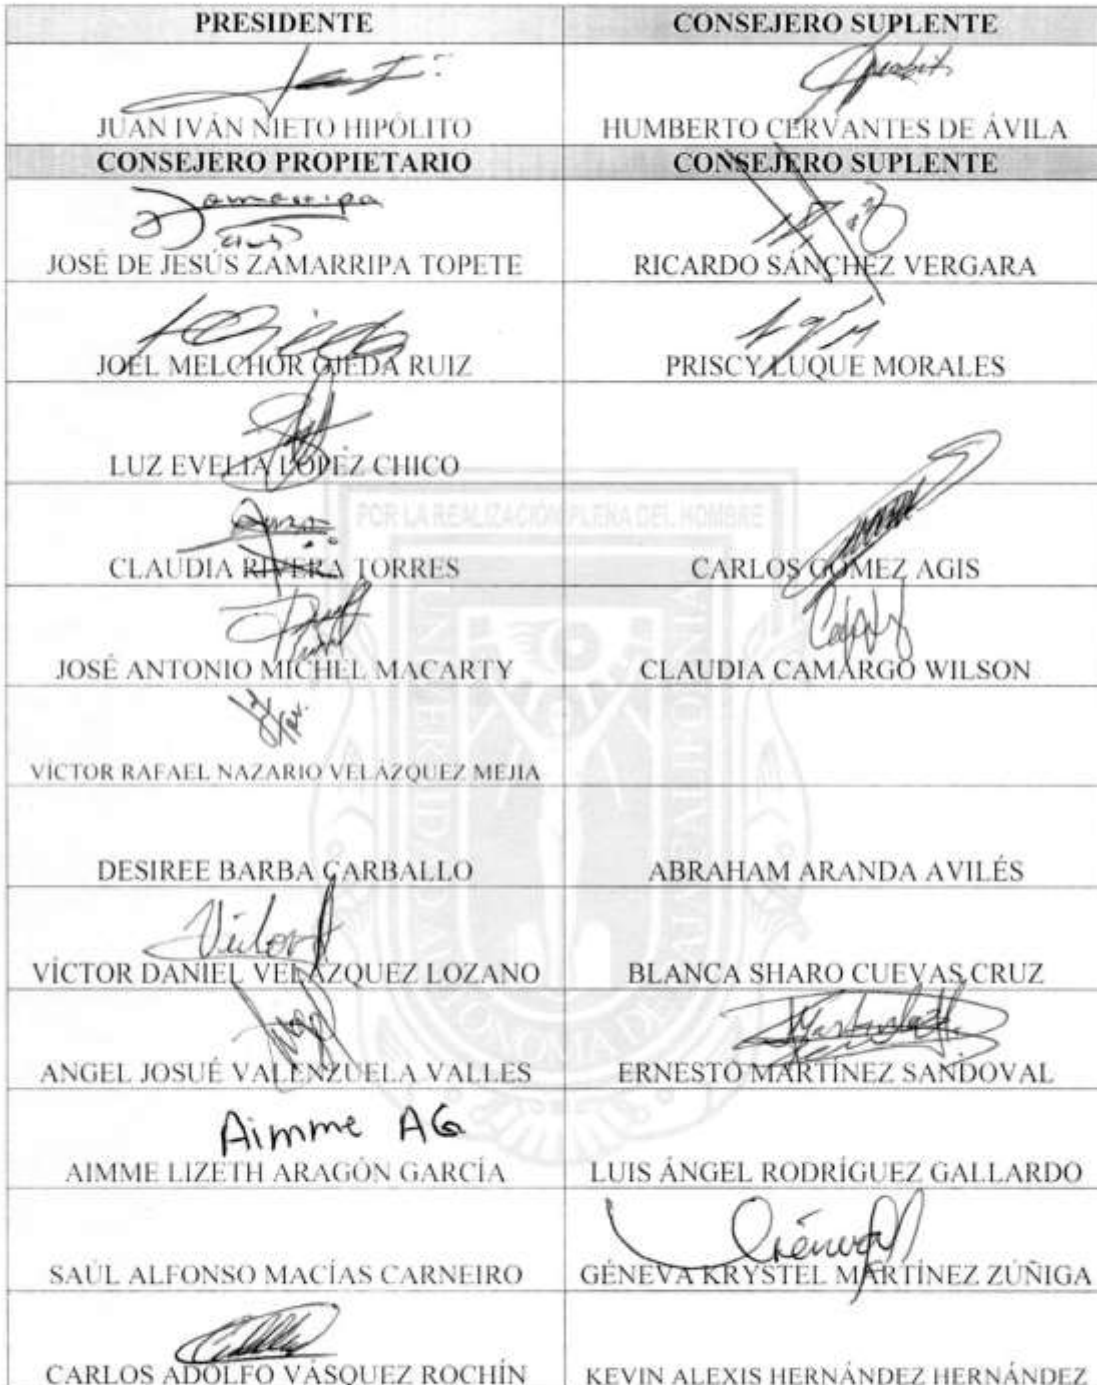 PRESIDENTE
CONSEJERO SUPLENTE
JUAN IVÁN NIETO HIPÓLITO
HUMBERTO CERVANTES DE ÁVILA
CONSEJERO PROPIETARIO
CONSEJERO SUPLENTE
Zamarripa
JOSÉ DE JESÚS ZAMARRIPA TOPETE
RICARDO SÁNCHEZ VERGARA
JOEL MELCHOR OJEDA RUIZ
PRISCY LUQUE MORALES
LUZ EVELIA LÓPEZ CHICO
POR LA REALIZACIÓN PLENA DEL HOMBRE
CLAUDIA RIVERA TORRES
CARLOS GÓMEZ AGIS
JOSÉ ANTONIO MICHEL MACARTY
CLAUDIA CAMARGO WILSON
VÍCTOR RAFAEL NAZARIO VELÁZQUEZ MEJIA
DESIREE BARBA CARBALLO
ABRAHAM ARANDA AVILÉS
Victor
VÍCTOR DANIEL VELÁZQUEZ LOZANO
BLANCA SHARO CUEVAS CRUZ
ANGEL JOSUÉ VALENZUELA VALLES
ERNESTO MARTÍNEZ SANDOVAL
Aimme AG
AIMME LIZETH ARAGÓN GARCÍA
LUIS ÁNGEL RODRÍGUEZ GALLARDO
SAÚL ALFONSO MACÍAS CARNEIRO
GÉNEVA KRYSTEL MARTÍNEZ ZÚÑIGA
CARLOS ADOLFO VÁSQUEZ ROCHÍN
KEVIN ALEXIS HERNÁNDEZ HERNÁNDEZ